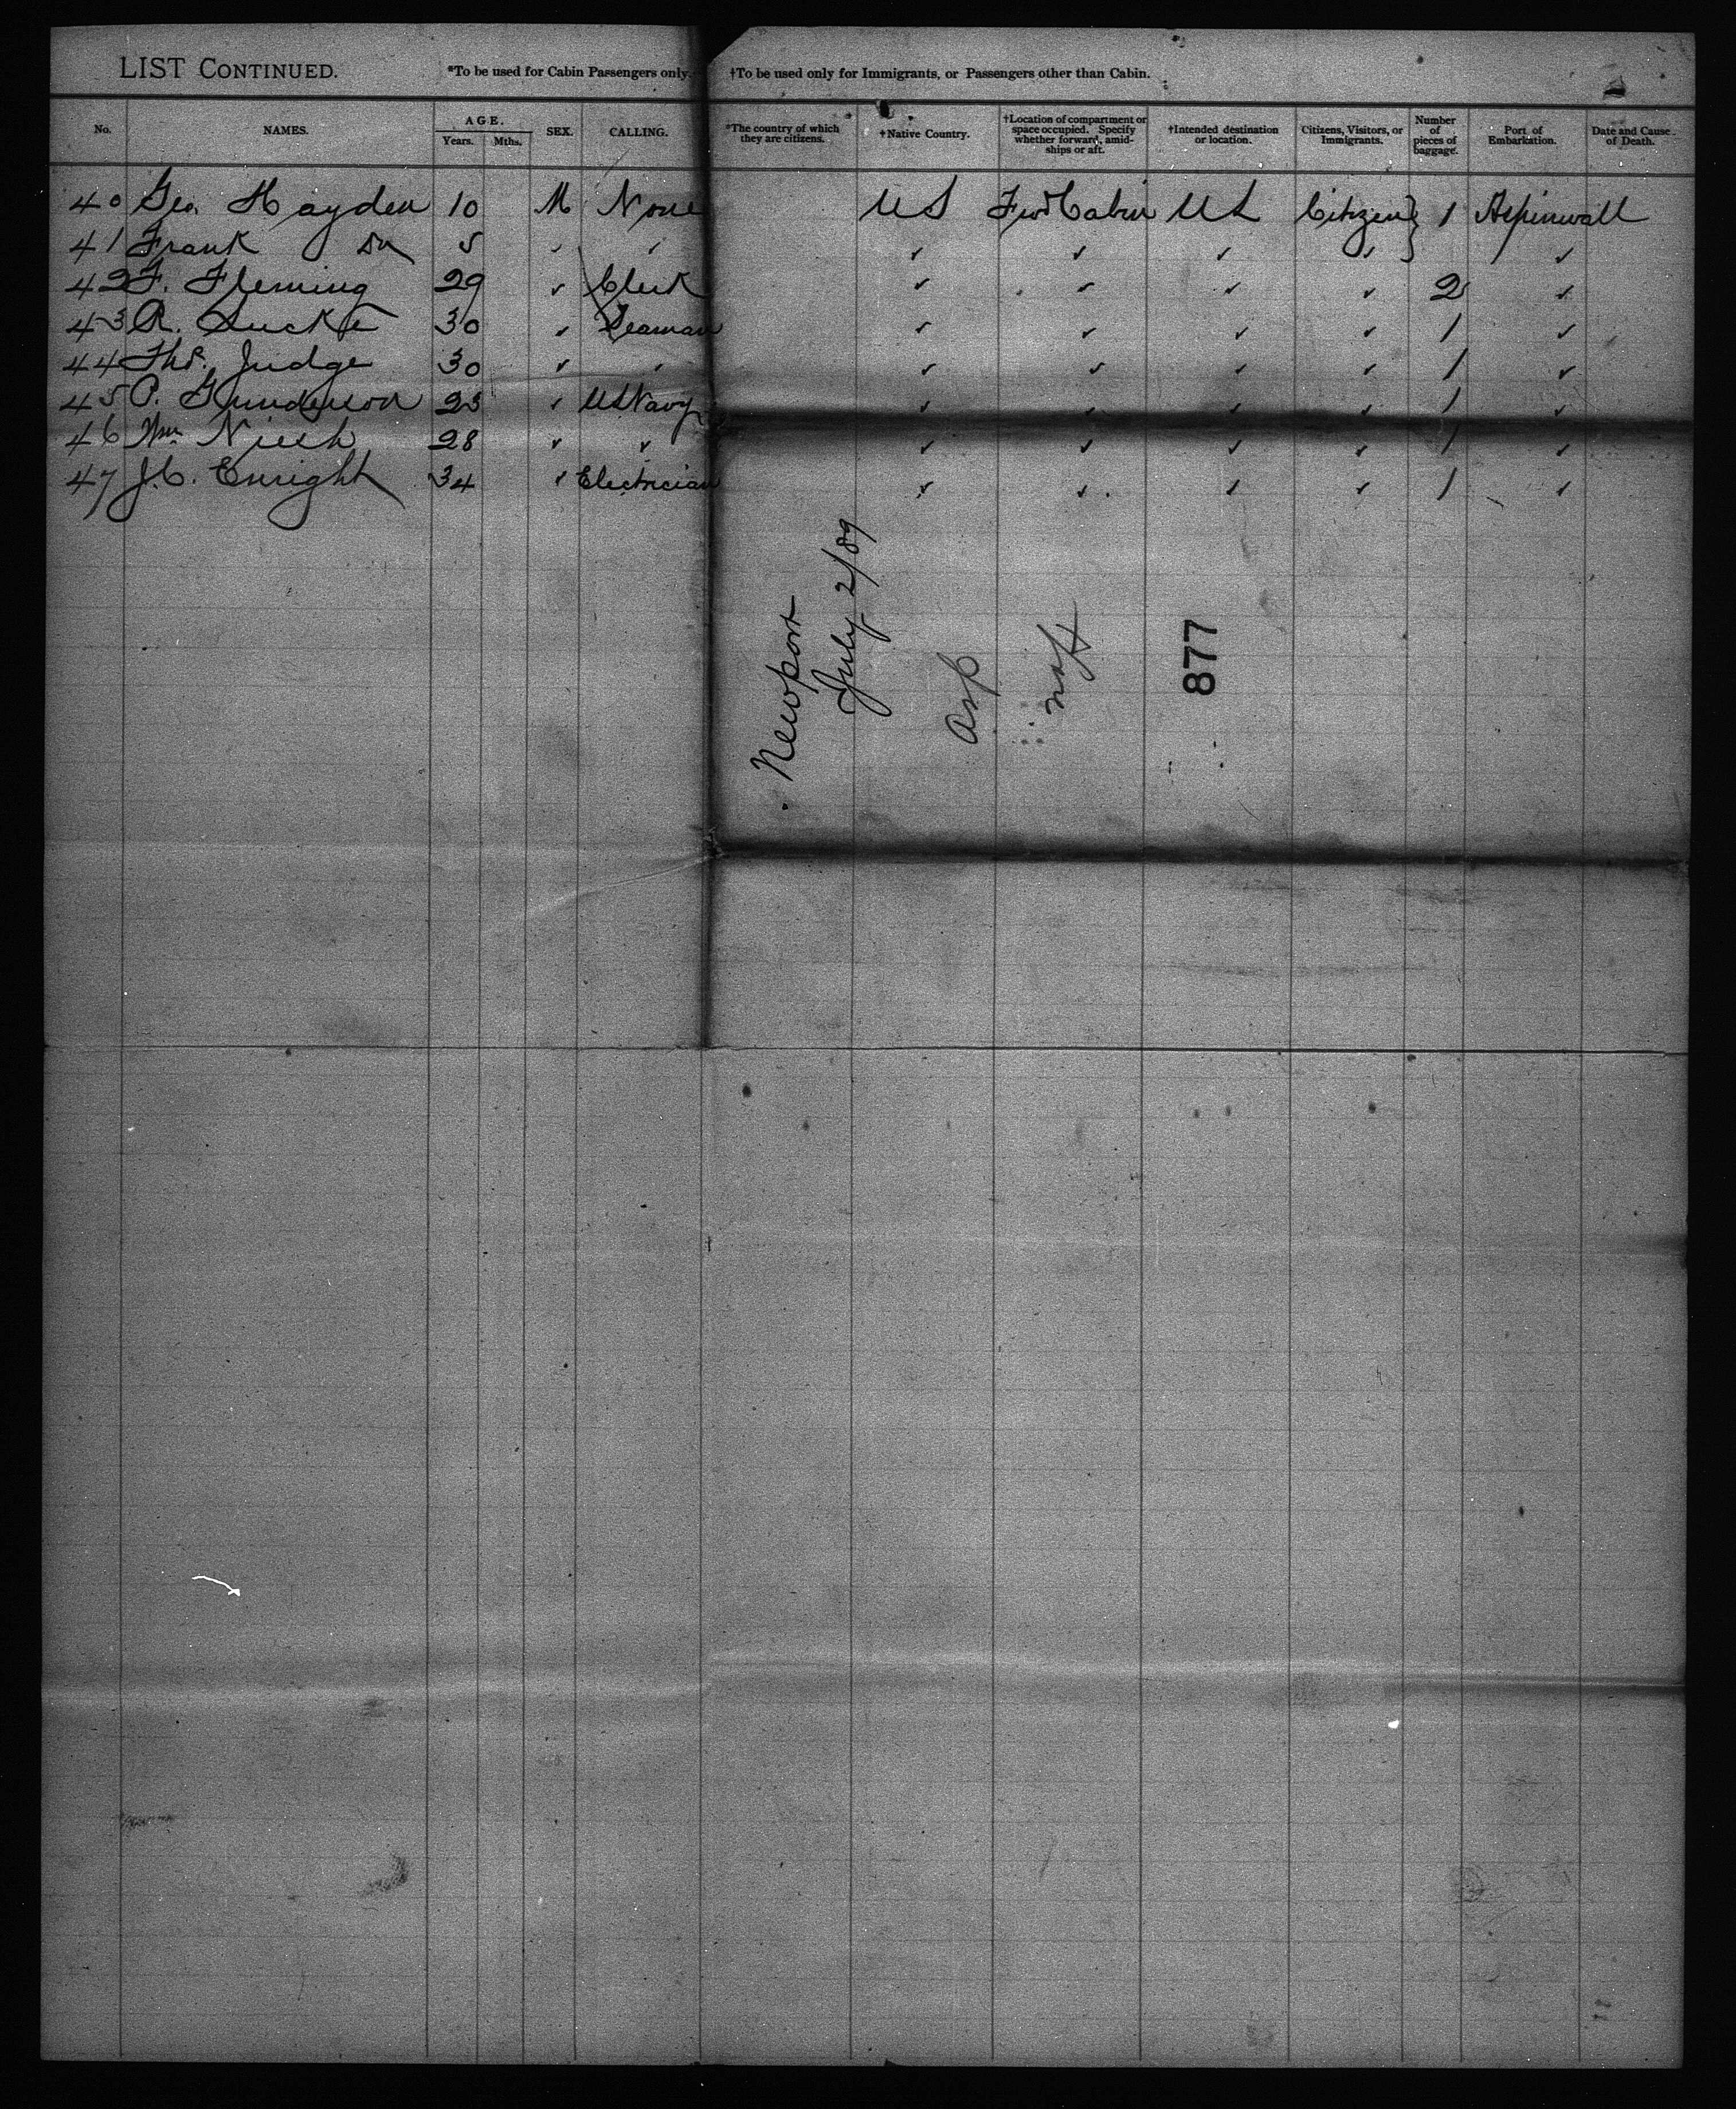 LIST CONTINUED. *To be used for Cabin Passengers only. †To be used only for Immigrants, or Passengers other than Cabin.
No. NAMES. AGE. Years. Mths. SEX. CALLING. *The country of which they are citizens. †Native Country. †Location of compartment or space occupied. Specify whether forward, amidships or aft. †Intended destination or location. Citizens, Visitors, or Immigrants. Number of pieces of baggage. Port of Embarkation. Date and Cause of Death.
40 Geo. Hayden 10 M None US Fwd Cabin US Citizen } 1 Aspinwall
41 Frank Do 5 " " " " " " "
42 F. Fleming 29 " Clerk " " " " 2 "
43 R. 30 " Seaman " " " " 1 "
44 Thos. Judge 30 " " " " " " 1 "
45 P. Gunderson 23 " US Navy " " " " 1 "
46 Wm 28 " " " " " " 1 "
47 J.C. Enright 34 " Electrician " " " " 1 "
Newport
July 2/89
Asp
877